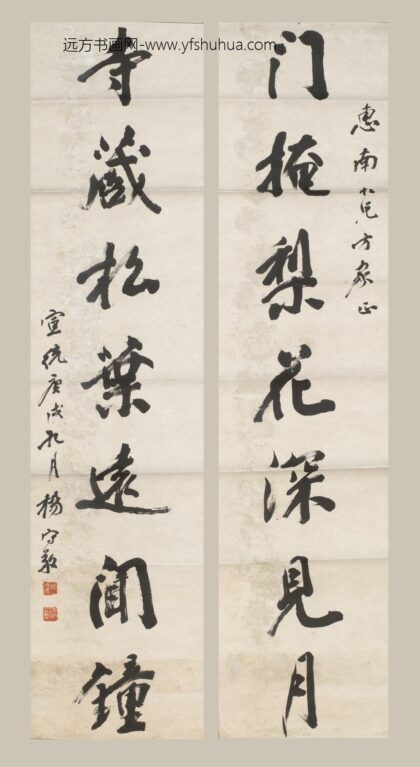 远方书画网-www.yfshuhua.com
惠南大兄方家正
门掩梨花深見月
寺藏松葉遠聞鐘
宣统庚戌九月楊守敬